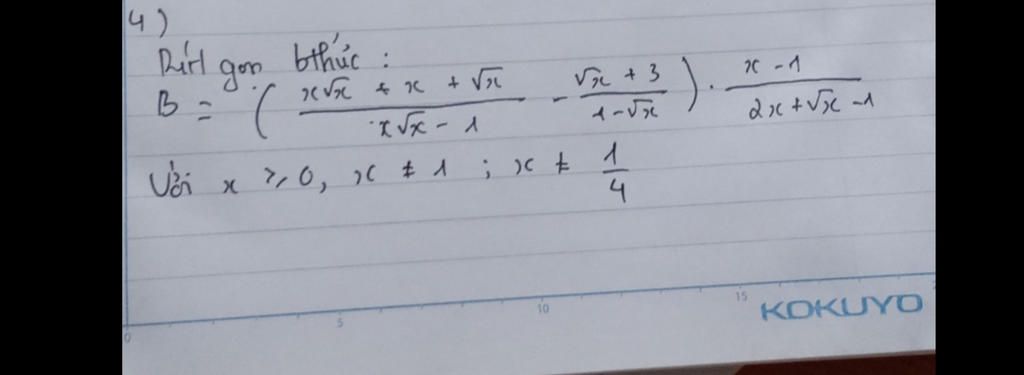 4)
Rút gọn bthức :
B = ( \frac{x√x + x + √x}{x√x - 1} - \frac{√x + 3}{1 - √x} ) . \frac{x - 1}{2x + √x - 1}
Với x ≥ 0, x ≠ 1 ; x ≠ \frac{1}{4}
0 5 10 15
KOKUYO